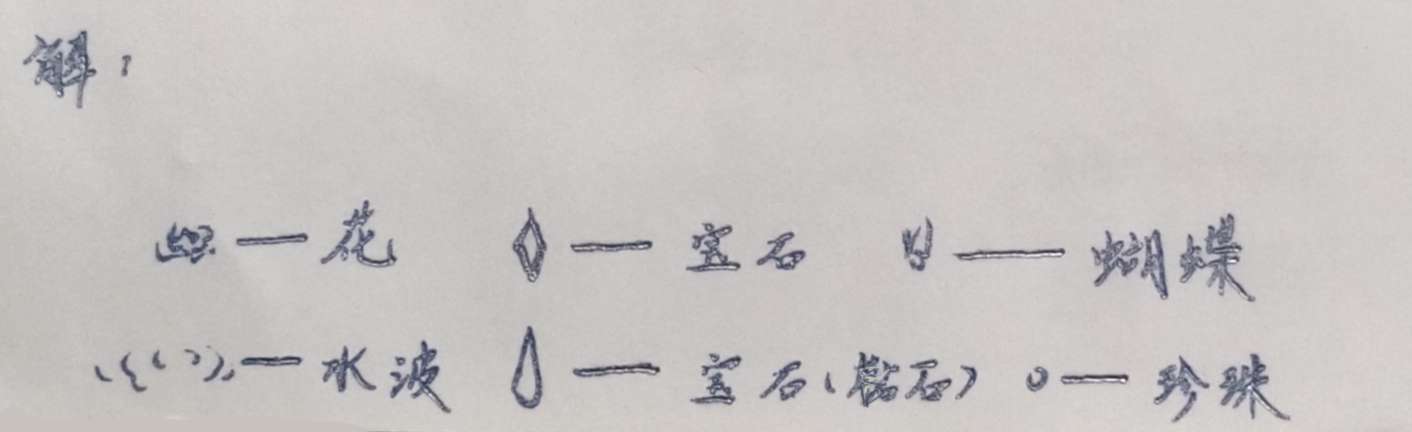 解:
— 花 — 宝石 — 蝴蝶
— 水波 — 宝石(钻石) — 珍珠